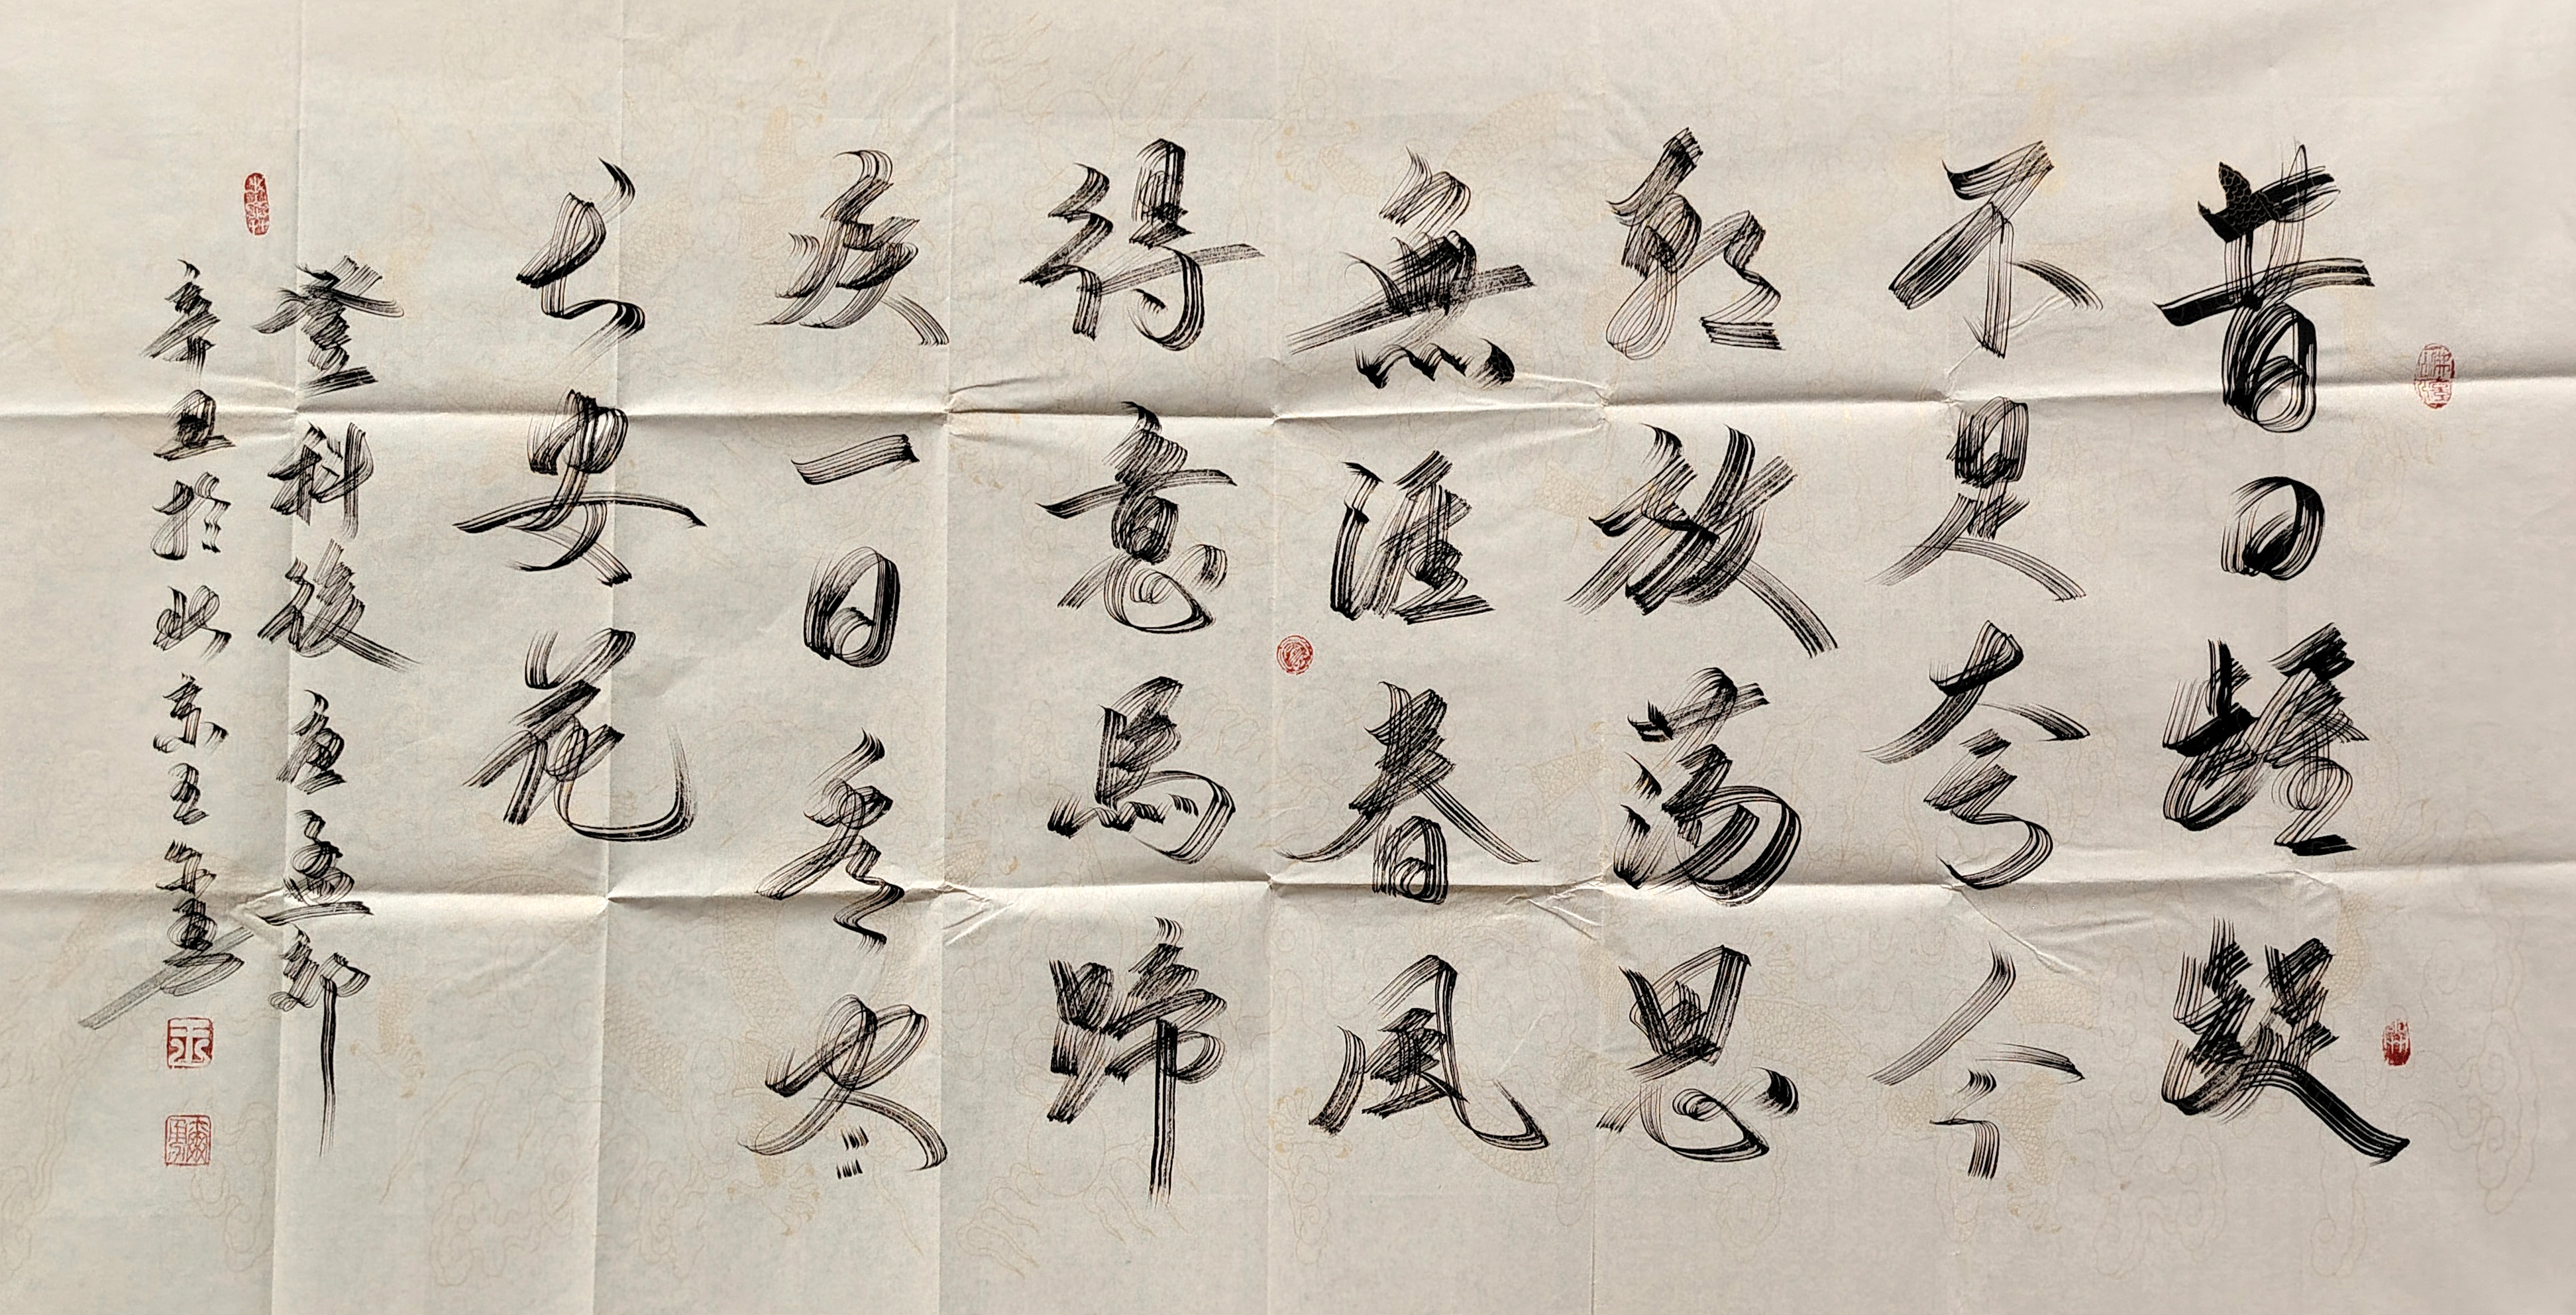 昔日龌龊
不足夸今
朝放荡思
無涯春風
得意馬蹄
疾一日看尽
长安花
登科後唐孟郊
辛丑於北京王